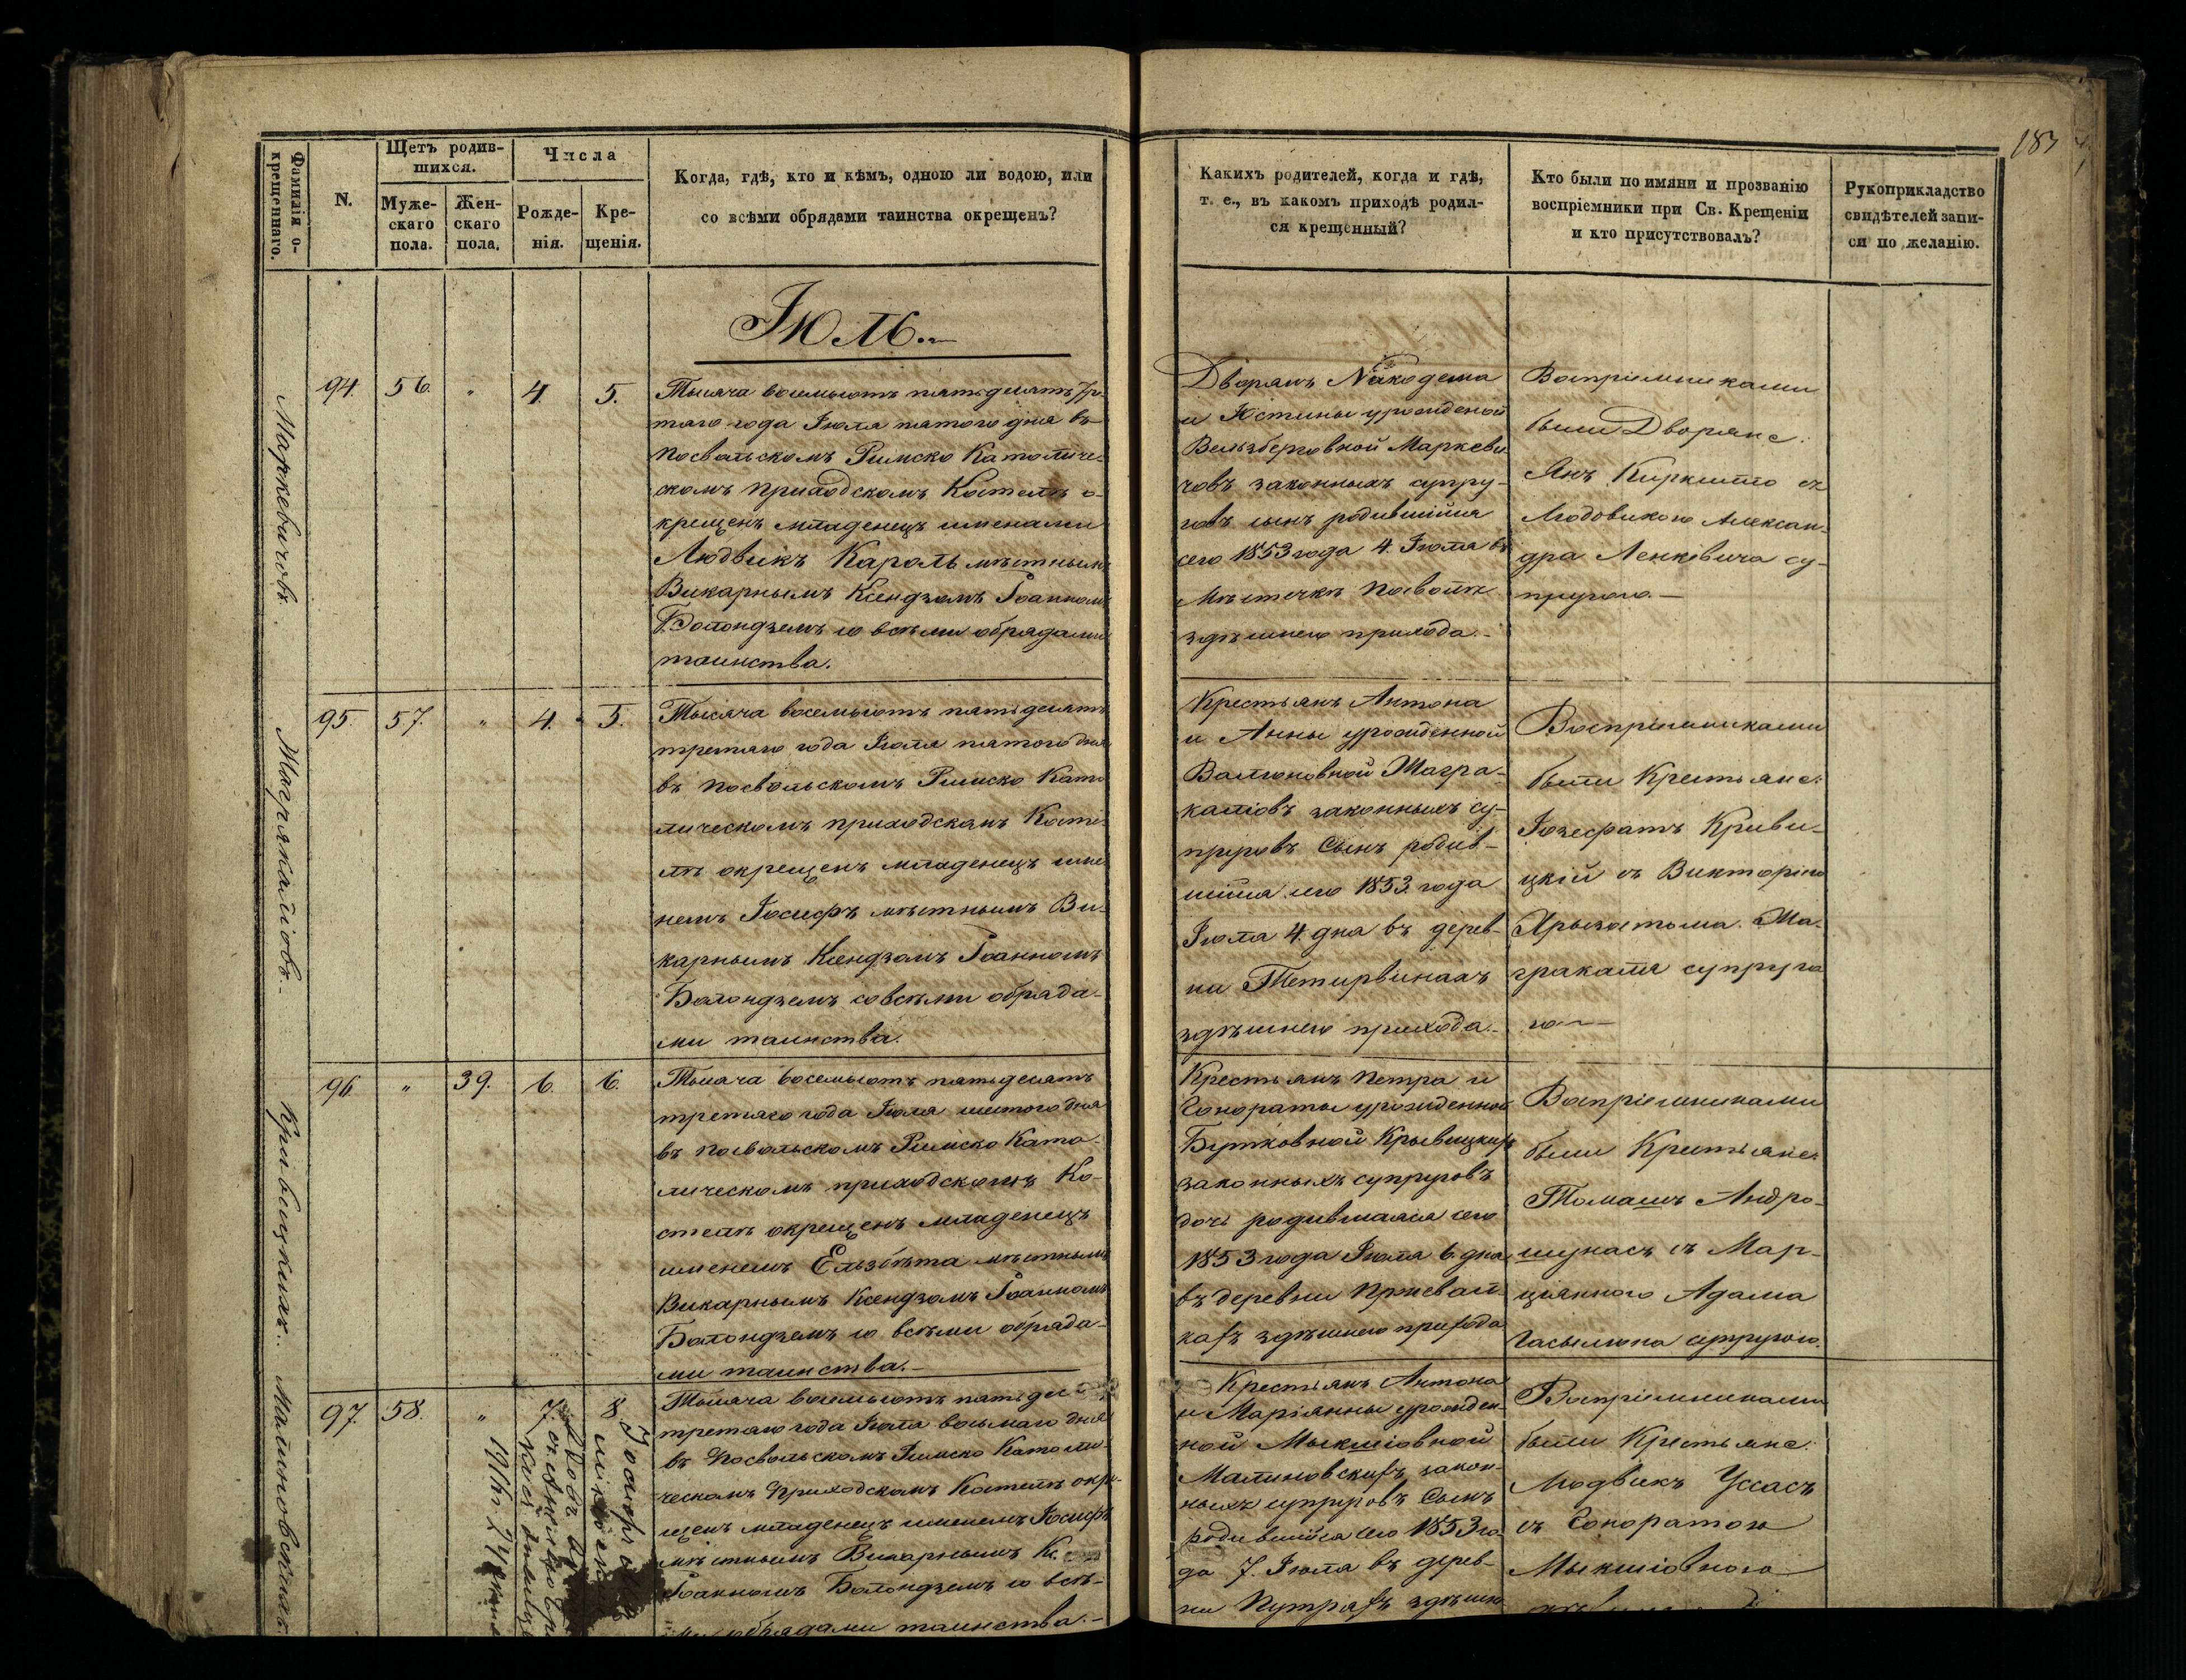 183
Фамилія о-
крещеннаго.
N.
Щетъ родив-
шихся.
Муже-
скаго
пола.
Жен-
скаго
пола.
Числа
Рожде-
нія.
Кре-
щенія.
Когда, гдѣ, кто и кѣмъ, одною ли водою, или
со всѣми обрядами таинства окрещенъ?
Каких родителей, когда и гдѣ,
т. е., въ какомъ приходѣ родил-
ся крещенный?
Кто были по имяни и прозванію
воспріемники при Св. Крещеніи
и кто присутствовалъ?
Рукоприкладство
свидѣтелей запи-
си по желанію.
Іюль.
Маркевичовъ.
94. 56. " 4. 5.
Тысяча восемьсотъ пятьдесятъ тре-
тяго года Іюля пятого дня въ
Посвольскомъ Римско Католиче-
скомъ приходскомъ Костелѣ о-
крещенъ младенецъ именами
Людвикъ Кароль мѣстнымъ
Викарнымъ Ксендзомъ Іоанномъ
Болондземъ со всѣми обрядами
таинства.
Дворянъ Никодема
и Юстины урожденой
Вельзберговной Маркеви-
човъ законныхъ супру-
говъ сынъ родившійся
сего 1853 года 4. Іюля въ
Мѣстечкѣ Посволѣ
здѣшнего прихода.
Воспріемниками
были Дворяне:
Янъ Киркилло съ
Людовикою Алексан-
дра Ленкевича су-
пругою.
Магракаліовъ.
95. 57. " 4. 5.
Тысяча восемьсотъ пятьдесятъ
третяго года Іюля пятого дня
въ Посвольскомъ Римско Като
лическомъ приходскомъ Косте-
лѣ окрещенъ младенецъ име
немъ Іосифъ мѣстнымъ Ви-
карнымъ Ксендзомъ Іоанномъ
Болондземъ со всѣми обряда-
ми таинства.
Крестьянъ Антона
и Анны урожденной
Валюновной Магра-
каліовъ законныхъ су-
пруговъ Сынъ родив-
шійся сего 1853 года
Іюля 4. дня въ дерев-
ни Тетирвинахъ
здѣшнего прихода.
Воспріемниками
были Крестьяне:
Іозефатъ Криви-
цкій съ Викторіею
Хрызостома Ма-
гракаля супруго
ю
Кривицкихъ.
96. " 39. 6. 6.
Тысяча восемьсотъ пятьдесятъ
третяго года Іюля шестого дня
въ Посвольскомъ Римско Като-
лическомъ приходскомъ Ко-
стелѣ окрещенъ младенецъ
именемъ Ельзбѣта мѣстнымъ
Викарнымъ Ксендзомъ Іоанномъ
Болондземъ со всѣми обряда-
ми таинства.
Крестьянъ Петра и
Гонораты урожденной
Бутковной Крывицкихъ
законныхъ супруговъ
дочь родившаяся сего
1853 года Іюля 6. дня
въ деревни Пржевал-
кахъ здѣшнего прихода
Воспріемниками
были Крестьяне:
Томашъ Андро-
шунасъ съ Мар-
ціянною Адама
Гасылюна супругою.
Малиновскихъ.
97. 58. " 7. 8
Тысяча восемьсотъ пятьдес
третяго года Іюля восьмаго дня
въ Посвольскомъ Римско Католи-
ческомъ Приходскомъ Костелѣ окре-
щенъ младенецъ именемъ Іосифъ
мѣстнымъ Викарнымъ Кс
Іоанномъ Болондземъ со всѣ-
ми обрядами таинства.
Крестьянъ Антона
и Маріянны урожден-
ной Мыкшіовной
Малиновскихъ закон-
ныхъ супруговъ Сынъ
родившійся сего 1853 го-
да 7. Іюля въ дерев-
ни Путряхъ здѣшня
Воспріемниками
были Крестьяне:
Людвикъ Уссасъ
съ Гоноратою
Мыкшіовною